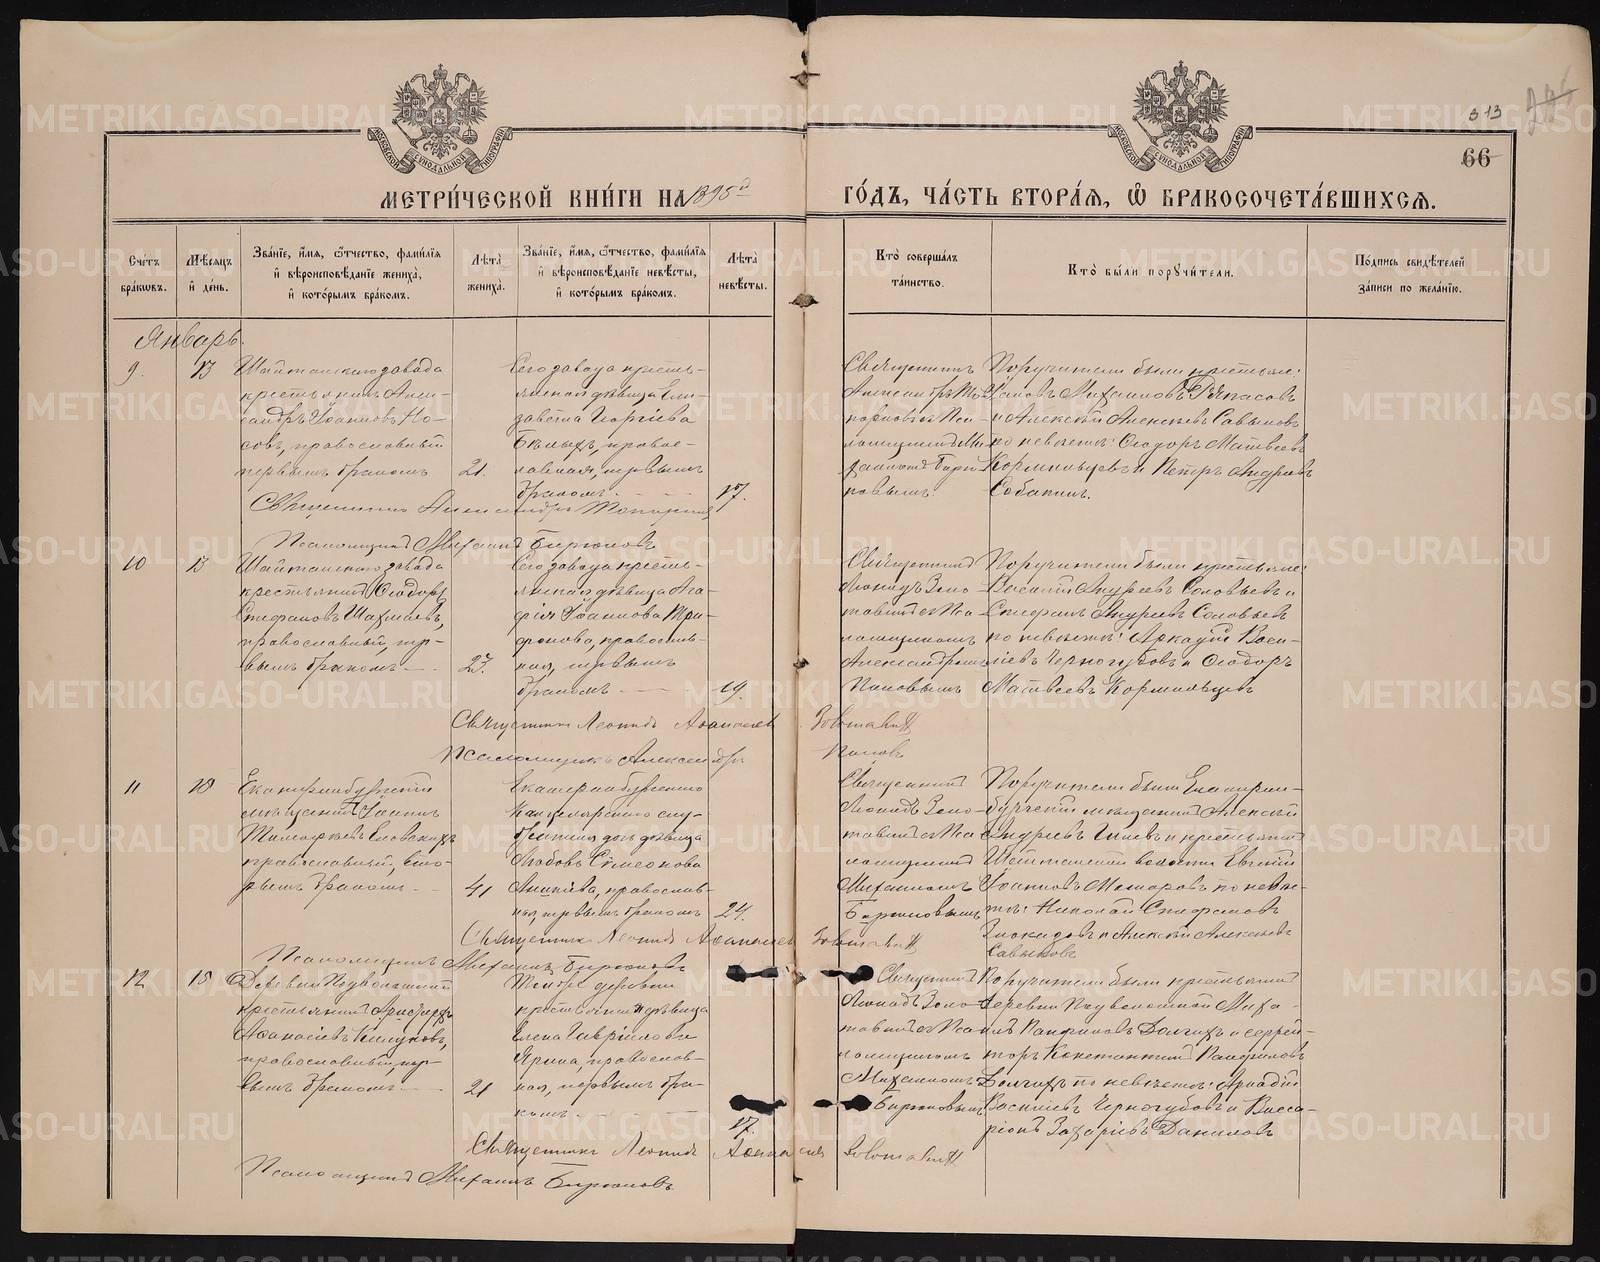 МОСКОВСКОЙ СѴНОДАЛЬНОЙ ТИПОГРАФІИ
МОСКОВСКОЙ СѴНОДАЛЬНОЙ ТИПОГРАФІИ
313
66
МЕТРИ́ЧЕСКОЙ КНИ́ГИ НА 1895й
ГО́ДЪ, ЧА́СТЬ ВТОРА́Я, Ѽ БРАКОСОЧЕТА́ВШИХСЯ.
Сче́тъ бра́ковъ.
Мѣ́сяцъ и҆ де́нь.
Зва́нїе, и҆́мя, ѻ҆́тчество, фами́лїя
и҆ вѣроисповѣ́данїе жениха̀,
и҆ кото́рымъ бра́комъ.
Лѣ́та̀ жениха̀.
Зва́нїе, и҆́мя, ѻ҆́тчество, фами́лїя
и҆ вѣроисповѣ́данїе невѣ́сты,
и҆ кото́рымъ бра́комъ.
Лѣ́та̀ невѣ́сты.
Кто̀ соверша́лъ
та́инство.
Кто̀ бы́ли порꙋчи́тели.
По́дпись свидѣ́телей
за́писи по жела́нїю.
Январь.
9.
13
Шайтанскаго завода
крестьянинъ Алек-
сандръ Іоанновъ Но-
совъ, православный
первымъ бракомъ
21.
Сего завода кресть-
янская дѣвица Ели-
завета Георгіева
Бѣлыхъ, правос-
лавная, первымъ
бракомъ.
17.
Священникъ
Александръ
Поручители были крестьяне:
Іоаннъ Михаиловъ
и Алексѣй Алексѣевъ Савыковъ
по невѣстѣ: Ѳеодоръ Матвѣевъ
Кормильцевъ и Петръ Андреевъ
Собакинъ.
Священникъ Александръ
Псаломщикъ Михаилъ Бирюковъ
10
13
Шайтанскаго завода
крестьянинъ Ѳеодоръ
Стефановъ Шахмаевъ,
православный, пер-
вымъ бракомъ
23.
Сего завода кресть-
янская дѣвица Ага-
фія Іоаннова Три-
фонова, православ-
ная, первымъ
бракомъ
19.
Священникъ
Леонидъ Золо-
тавинъ съ Пса-
ломщикомъ
Александромъ
Поповымъ
Поручители были крестьяне:
Василій Андреевъ Соловьевъ и
Стефанъ Андреевъ Соловьевъ
по невѣстѣ: Аркадій Васи-
ліевъ Черногубовъ и Ѳеодоръ
Матвѣевъ Кормильцевъ
Священникъ Леонидъ Аѳанасіевъ Золотавинъ
Псаломщикъ Александръ Поповъ
11
18
Екатеринбургскій
мѣщанинъ Іоаннъ
Тимофѣевъ
православный, вто-
рымъ бракомъ
41
Екатеринбургскаго
Канцелярскаго слу-
жителя дочь дѣвица
Любовь Симеонова
Аникіева, православ-
ная, первымъ бракомъ
24.
Священникъ
Леонидъ Золо-
тавинъ съ Пса-
ломщикомъ
Михаиломъ
Бирюковымъ
Поручители были Екатерин-
бургскій мѣщанинъ Алексѣй
Андреевъ и крестьянинъ
Шайтанской волости Евгеній
Іоанновъ по невѣс-
тѣ: Николай Стефановъ
и Алексѣй Алексѣевъ
Савыковъ
Священникъ Леонидъ Аѳанасіевъ Золотавинъ
Псаломщикъ Михаилъ Бирюковъ
12
18
Деревни Подволошной
крестьянинъ
Аѳанасіевъ
православный, пер-
вымъ бракомъ
21
Тойже деревни
крестьянская дѣвица
Елена Гавріилова
православ-
ная, первымъ бра-
комъ
17.
Священникъ
Леонидъ Золо-
тавинъ съ Пса-
ломщикомъ
Михаиломъ
Бирюковымъ
Поручители были крестьяне
деревни Подволошной Миха-
илъ Панфиловъ Долгихъ и
Константинъ Панфиловъ
Долгихъ по невѣстѣ: Аркадій
Василіевъ Черногубовъ и Висса-
ріонъ Захаріевъ Даниловъ
Священникъ Леонидъ Аѳанасіевъ Золотавинъ
Псаломщикъ Михаилъ Бирюковъ
METRIKI.GASO-URAL.RU